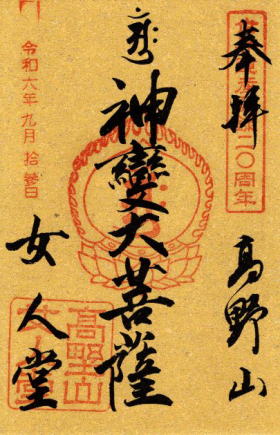 奉拝
高野山
神變大菩薩
令和六年九月拾參日
女人堂
高野山
女人堂